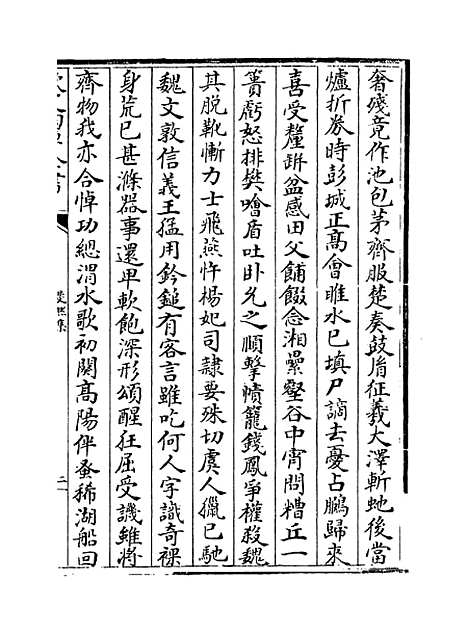 奢殘竟作池包茅齊服楚奏鼓𦙍征羲大澤斬虵後當
爐折劵時彭城正髙會睢水已填尸謫去憂占鵩歸來
喜受釐缾盆感田父餔餟念湘纍壑谷中宵問糟丘一
簣虧怒排樊噲盾吐卧允之順擊幘籠錢鳯爭權殺魏
其脱靴慚力士飛燕忤楊妃司隷要殊切虞人獵已馳
魏文敦信義王猛用鈐鎚有客言雖吃何人字識奇裸
身荒已甚滌器事還卑軟飽深形頌醒狂屈受譏雖将
齊物我亦合悼功緦渭水歌初闋髙陽伴蚤稀湖船回
二